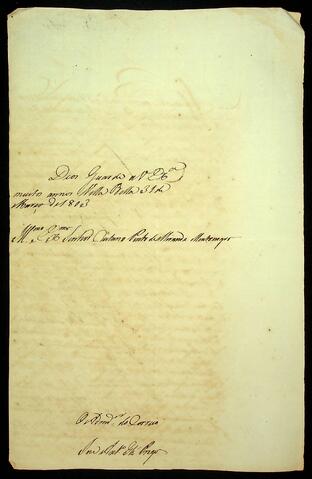 Deos Guarde a V. Ex.ª
muitos annos Villa Bella 31 de
Março de 1803
Ill.mo e Ex.mo
S.r Caetano Pinto de Miranda Montenegro
O Adm.or do Correio
Joze Ant.o